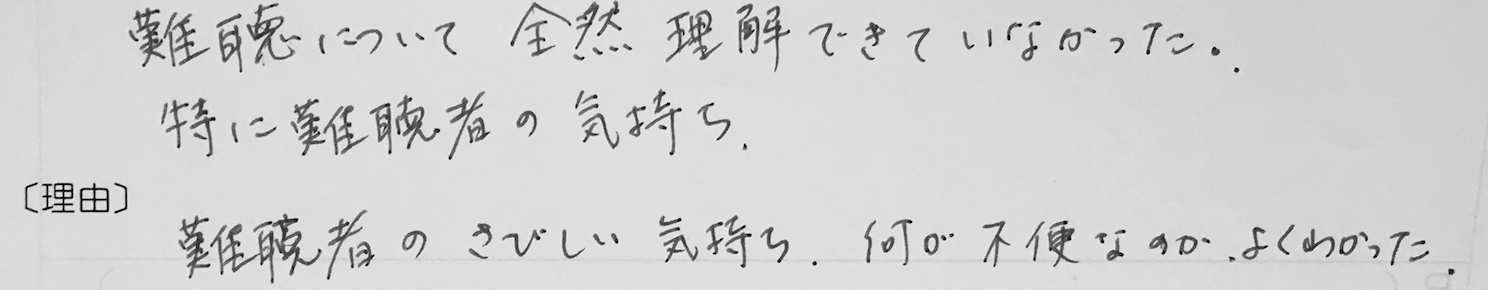 難聴について 全然 理解できていなかった。
特に難聴者の気持ち.
〔理由〕
難聴者のさびしい気持ち. 何が不便なのか.よくわかった.